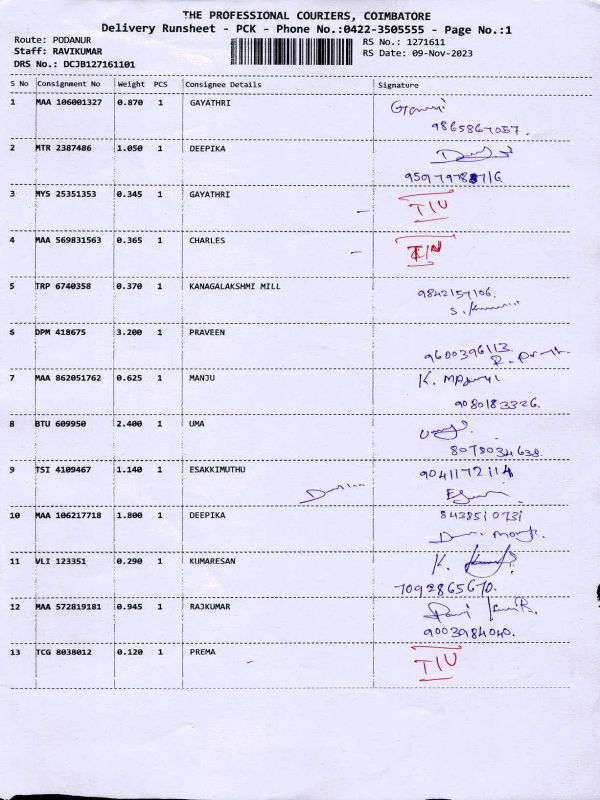 THE PROFESSIONAL COURIERS, COIMBATORE
Delivery Runsheet - PCK - Phone No.:0422-3505555 - Page No.:1
Route: PODANUR RS No.: 1271611
Staff: RAVIKUMAR RS Date: 09-Nov-2023
DRS No.: DCJB127161101
S No Consignment No Weight PCS Consignee Details Signature
1 MAA 106001327 0.870 1 GAYATHRI
9865867057.
2 MTR 2387486 1.050 1 DEEPIKA
3 MYS 25351353 0.345 1 GAYATHRI TIU
4 MAA 569831563 0.365 1 CHARLES
5 TRP 6740358 0.370 1 KANAGALAKSHMI MILL 9842157106
6 DPM 418675 3.200 1 PRAVEEN
9600396113
7 MAA 862051762 0.625 1 MANJU
9080183326.
8 BTU 609950 2.400 1 UMA
8078034638
9 TSI 4109467 1.140 1 ESAKKIMUTHU 9041172114
10 MAA 106217718 1.800 1 DEEPIKA 8438510731
11 VLI 123351 0.290 1 KUMARESAN
7092865670.
12 MAA 572819181 0.945 1 RAJKUMAR
9003984040.
13 TCG 8038012 0.120 1 PREMA TIU